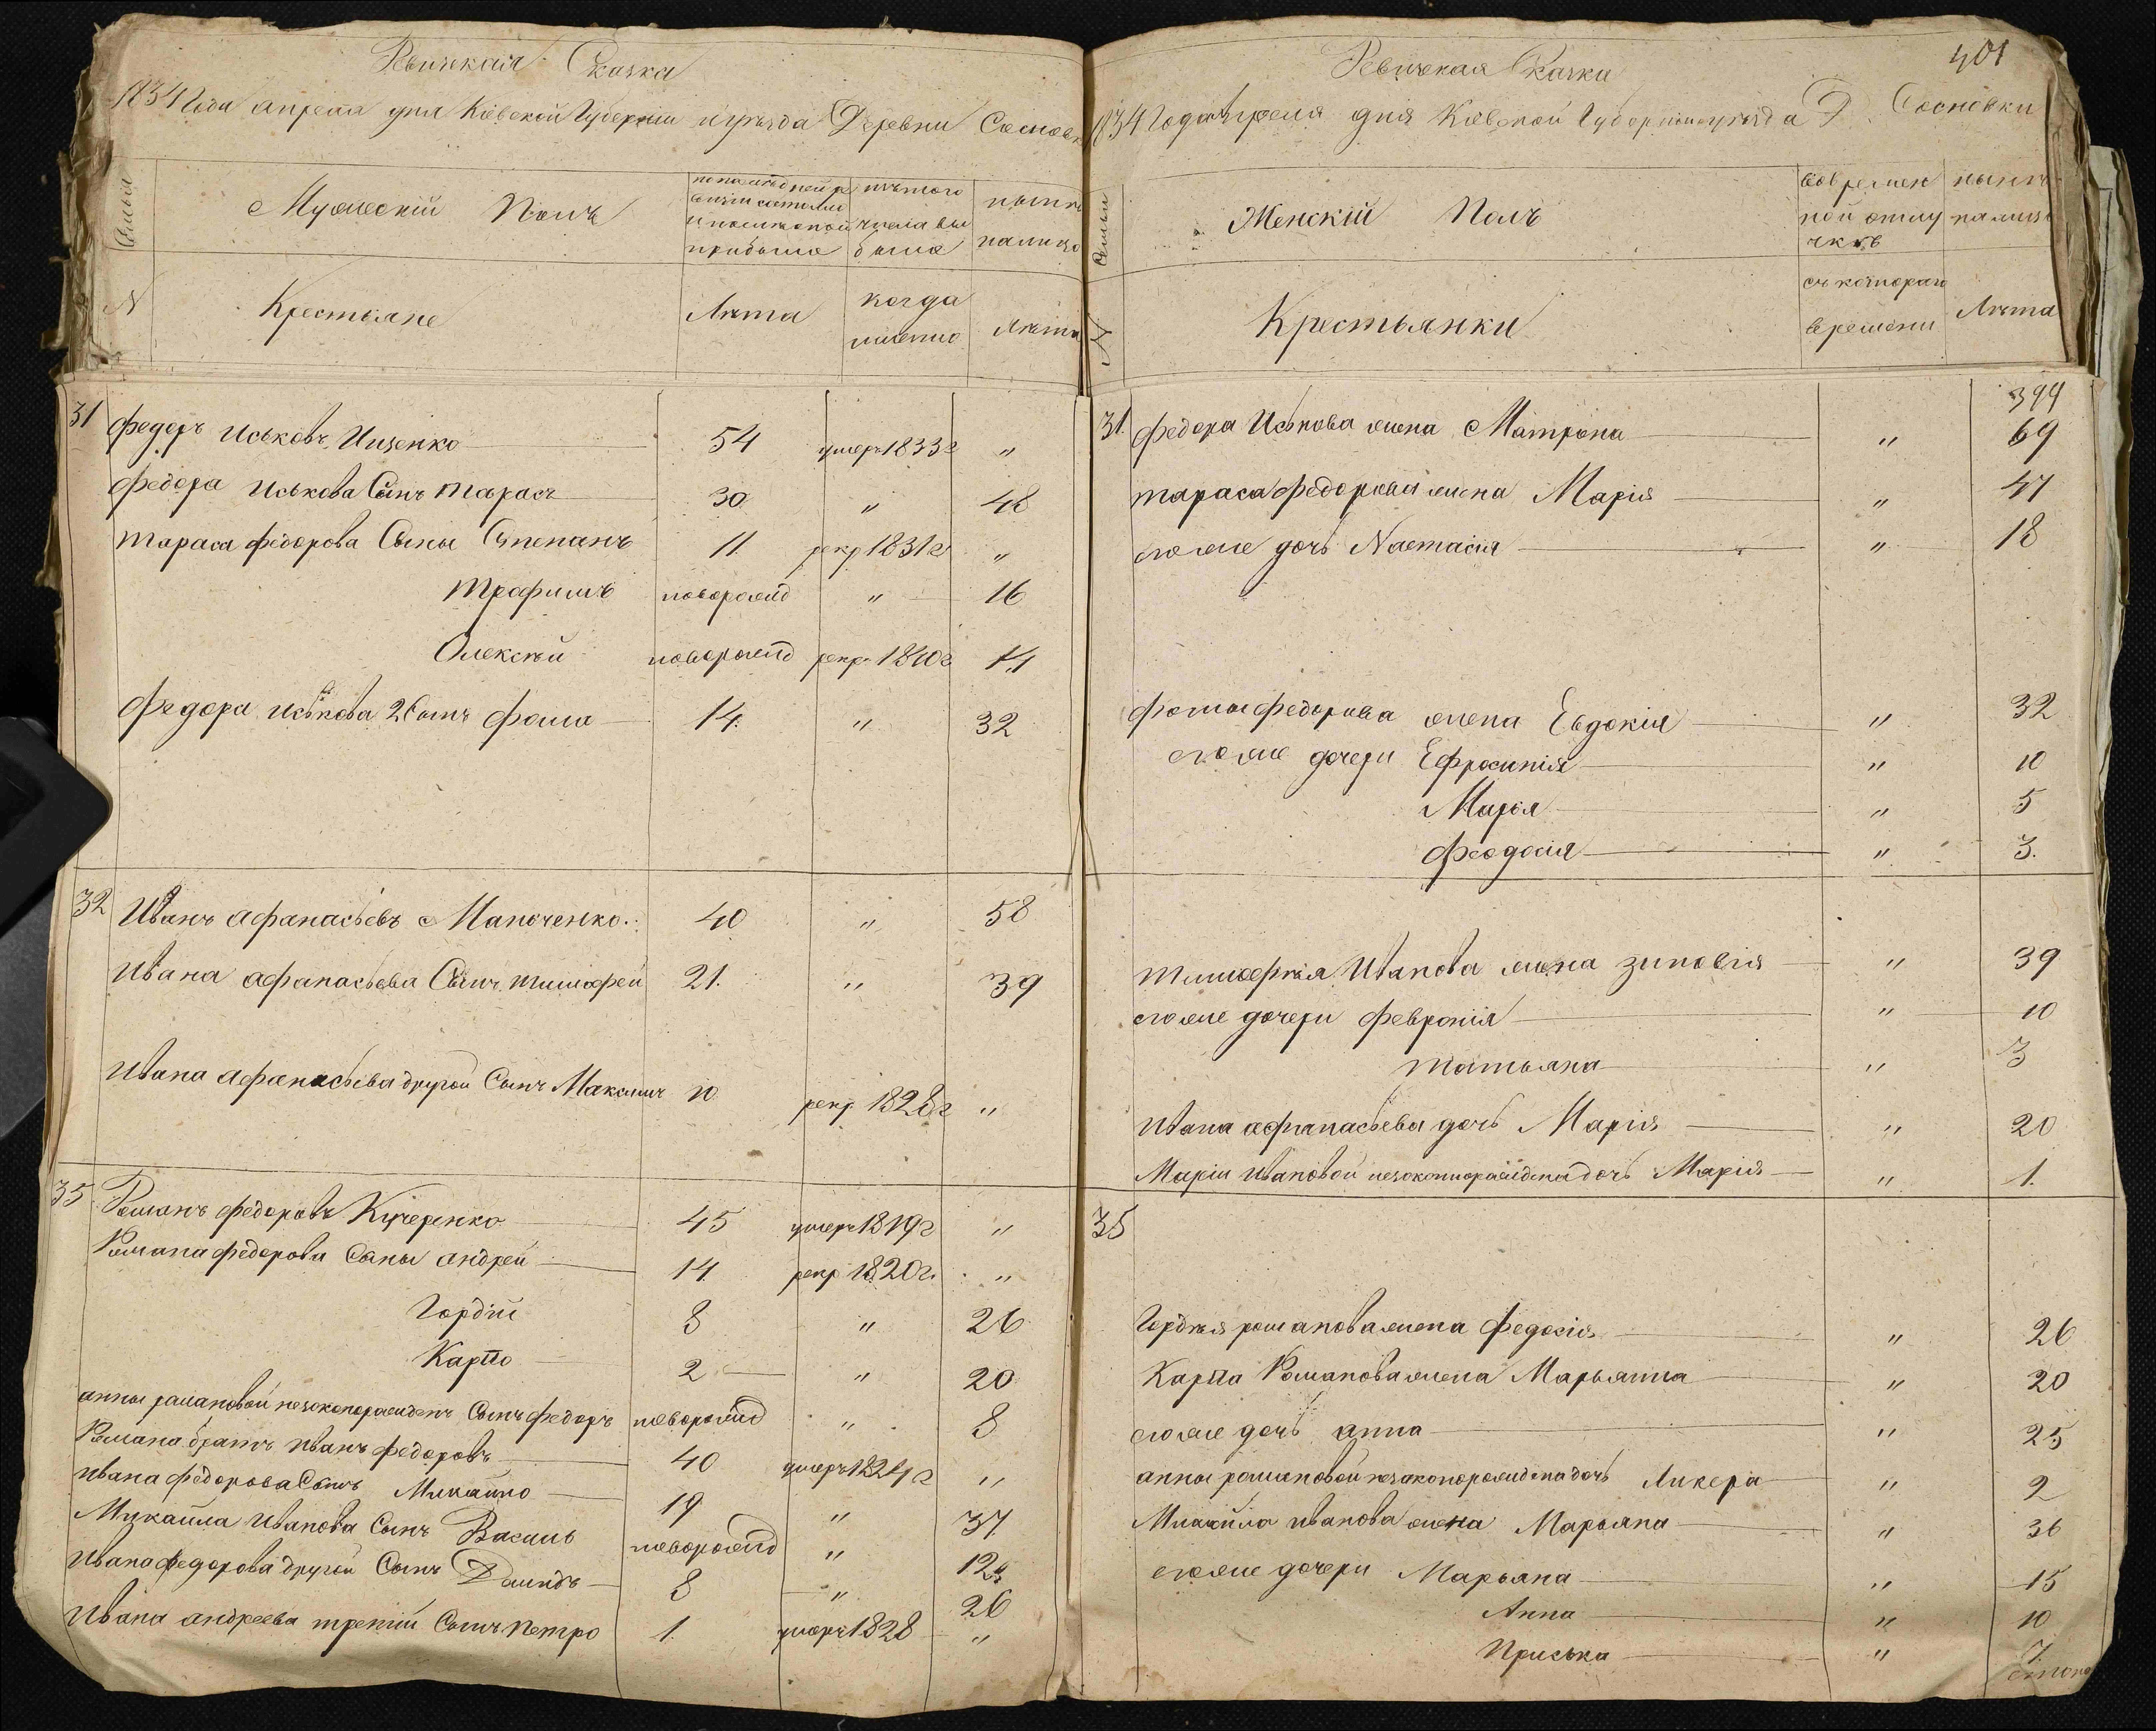 Ревижская Сказка
1834 Года апреля дня Киевской Губернии и уезда Деревни Сосновк
Семьи
Мужескій Полъ
по последней ревизіи состояло и после оной прибыло
изъ того числа выбыло
ныне на лицо
N
Крестьяне
Лета
когда именно
Лета
31 Федоръ Иськовъ Ищенко 54 умеръ 1833г "
Федора Иськова Сынъ Тарасъ 30 " 48
Тараса Федорова Сыны Степанъ 11 рекр 1831г "
Трафимъ новорожд " 16
Олексей новорожд рекр 1840г 14
Федора Иськова 2 Сынъ Фома 14 " 32
32 Иванъ Афанасьевъ Манюченко 40 " 58
Ивана Афанасьева Сынъ Тимофей 21 " 39
Ивана Афанасьева другой Сынъ Максимъ 10 рекр 1828г "
35 Романъ Федоровъ Кучеренко 45 умеръ 1819г "
Романа Федорова Сыны Андрей 14 рекр 1820г. "
Гордій 8 " 26
Карпо 2 " 20
Анны Романовой незаконорожденъ Сынъ Федоръ новорожд " 8
Романа братъ Иванъ Федоровъ 40 умеръ 1824г "
Ивана Федорова Сынъ Михайло 19 " 37
Михайла Иванова Сынъ Василь новорожд " 12
Ивана Федорова другой Сынъ Демидъ 8 " 26
Ивана Андреева третій Сынъ Петро 1 умеръ 1828 "
401
Ревижская Сказка
1834 Года Апреля дня Киевской Губернии и уезда Д. Сосновки
Семьи
Женскій Полъ
во временной отлучкѣ
ныне на лицо
N
Крестьянки
съ котораго времени
Лета
399
31 Федора Иськова жена Матрона " 69
Тараса Федорова жена Марія " 47
его же дочь Настасія " 18
Фомы Федорова жена Евдокія " 32
его же дочери Ефросинія " 10
Марья " 5
Феодосія " 3.
Тимофея Иванова жена Зиновія " 39
его же дочери Февронія " 10
Татьяна " 3
Ивана Афанасьева дочь Марія " 20
Маріи Ивановой незаконнорожденна дочь Марія " 1.
35
Гордея Романова жена Федосія " 26
Карпа Романова жена Марьянна " 20
его же дочь Анна " 25
Анны Романовой незаконорожденна дочь Ликера " 2
Михайла Иванова жена Марьяна " 36
его же дочери Марьяна " 15
Анна " 10
Приська " 7